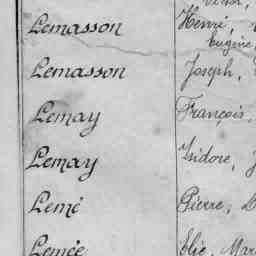 Lemasson Henri,
Eugène
Lemasson Joseph,
Lemay François,
Lemay Isidore, J
Lemé Pierre,
Lemée Elie, Mar